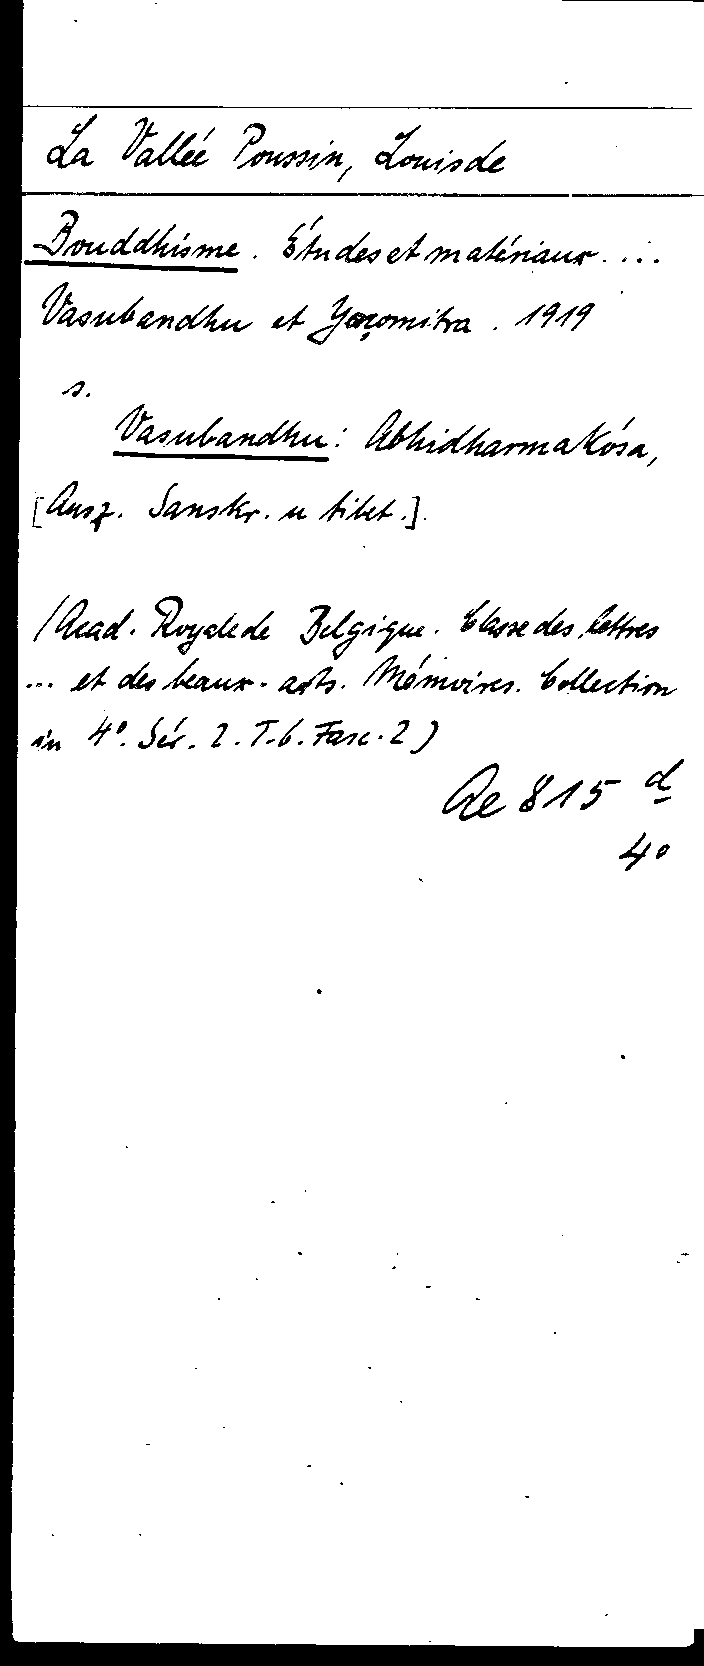 La Vallée Poussin, Louis de
Bouddhisme. Études et matériaux. ...
Vasubandhu et Yaçomitra. 1919
s.
Vasubandhu: Abhidharmakósa,
[Ausz. Sanskr. u tibet.].
(Acad. Royale de Belgique. Classe des lettres
... et des beaux-arts. Mémoires. Collection
in 4°. Sér. 2. T. 6. Fasc. 2)
Ae 815 d
4°